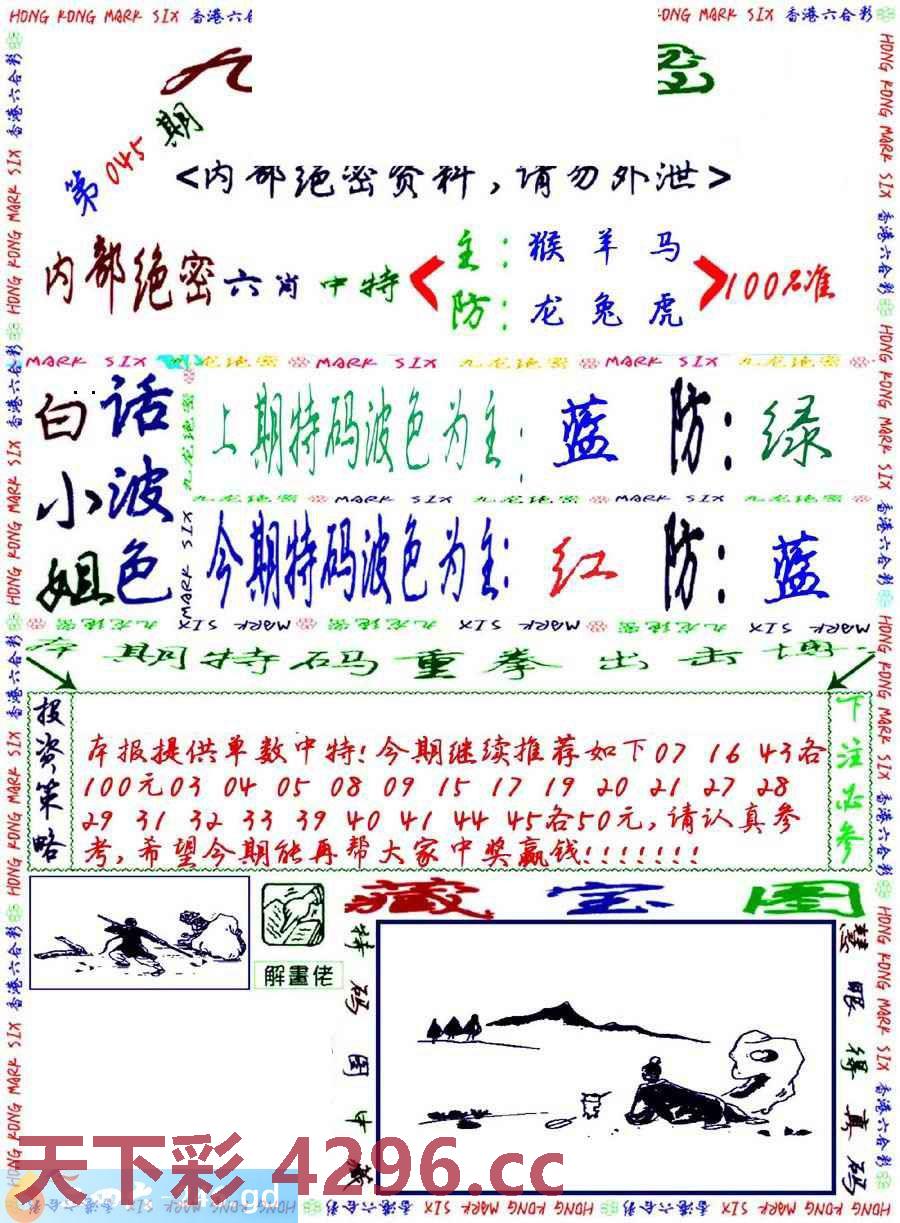 HONG KONG MARK SIX 香港六合彩
第045期
<内部绝密资料,请勿外泄>
内部绝密六肖中特
主:猴羊马
防:龙兔虎
100%准
MARK SIX 九龙绝密 MARK SIX 九龙绝密 MARK SIX 九龙绝密
白话小波姐色
上期特码波色为主:蓝 防:绿
九龙绝密 MARK SIX 九龙绝密 MARK SIX 九龙绝密 MARK SIX
今期特码波色为主:红 防:蓝
本期特码重拳出击
投资策略
本报提供单数中特!今期继续推荐如下07 16 43各
100元03 04 05 08 09 15 17 19 20 21 27 28
29 31 32 33 39 40 41 44 45各50元,请认真参
考,希望今期能再帮大家中奖赢钱!!!!!!!
下注必参
藏宝图
解畫佬
特码图中藏
慧眼得真码
天下彩 4296.cc
gd